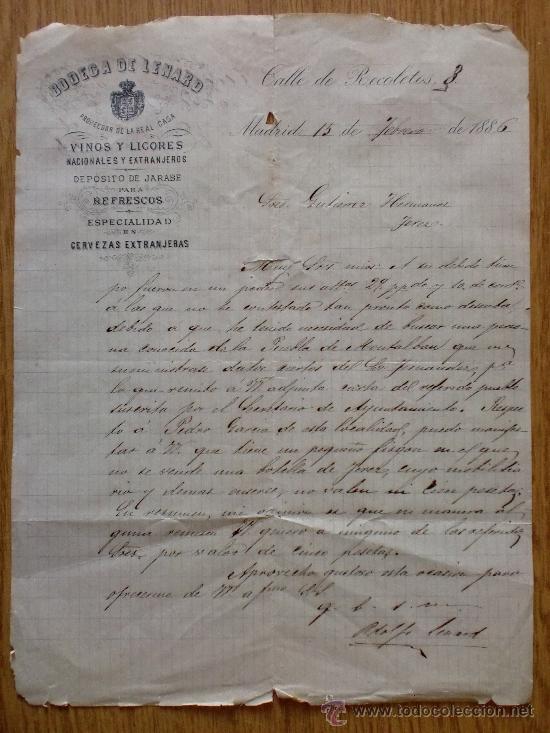 BODEGA DE LENARD
PROVEEDOR DE LA REAL CASA
VINOS Y LICORES
NACIONALES Y EXTRANJEROS
DEPÓSITO DE JARABE
PARA
REFRESCOS
ESPECIALIDAD
EN
CERVEZAS EXTRANJERAS
Calle de Recoletos 3
Madrid 15 de Febrero de 1886
Sres. Gutierrez Hermanos
Jerez
Muy Sres mios: A su debido tiem
po fueron en mi poder sus attas 29 ppdo y 10 de cort.
á las que no he contestado tan pronto como deseaba
debido a que he tenido necesidad de buscar una perso
na conocida de la Puebla de Montalban que me
suministrase datos ciertos del Fernandez, p.
lo que remito á V. adjunta carta del referido pueblo
suscrita por el Secretario de Ayuntamiento. Respec
to á Pedro Garcia de esta localidad, puedo manifes
tar á V. que tiene un pequeño figon en el que
no se vende una botella de Jerez, cuyo mobilia
rio y demas enseres, no valen ni cien pesetas.
En resumen, mi opinion es que en manera al
guna remesen V. genero a ninguno de los referidos
Sres. por valor de cinco pesetas.
Aprovecho gustoso esta ocasion para
ofrecerme de V. a
q. b. s. m.
Adolfo Lenard
www.todocoleccion.net